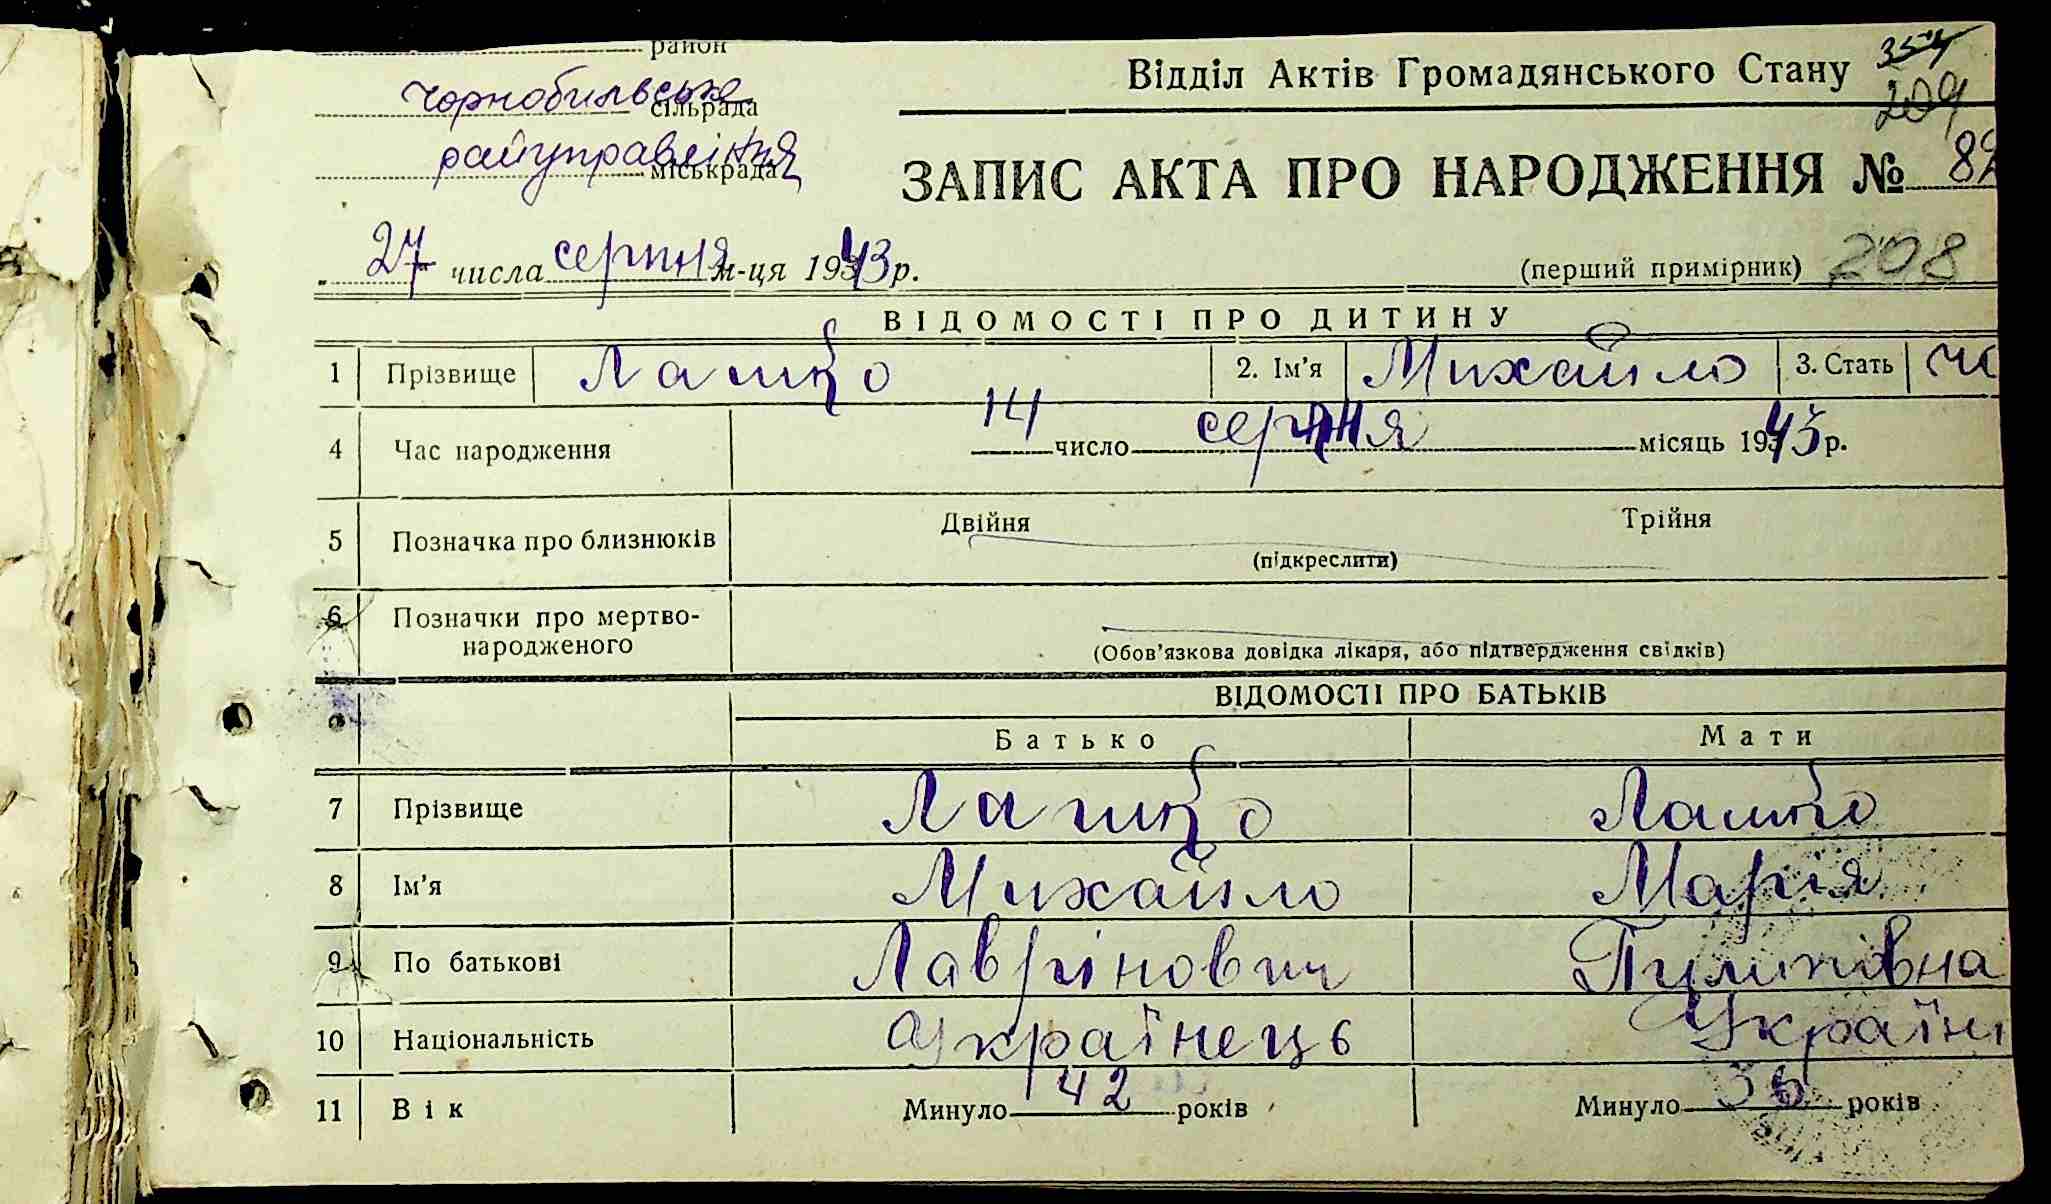 район
Чорнобильська сільрада
райуправління міськрада
Відділ Актів Громадянського Стану
209
ЗАПИС АКТА ПРО НАРОДЖЕННЯ №
27 числа серпня м-ця 1943 р.
(перший примірник) 208
ВІДОМОСТІ ПРО ДИТИНУ
1 Прізвище Лашко 2. Ім'я Михайло 3. Стать
4 Час народження 14 число серпня місяць 1943 р.
5 Позначка про близнюків Двійня Трійня
(підкреслити)
6 Позначки про мертво-
народженого
(Обов'язкова довідка лікаря, або підтвердження свідків)
ВІДОМОСТІ ПРО БАТЬКІВ
Батько Мати
7 Прізвище Лашко Лашко
8 Ім'я Михайло Марія
9 По батькові Лаврінович
10 Національність Українець Україн
11 Вік Минуло 42 років Минуло 36 років